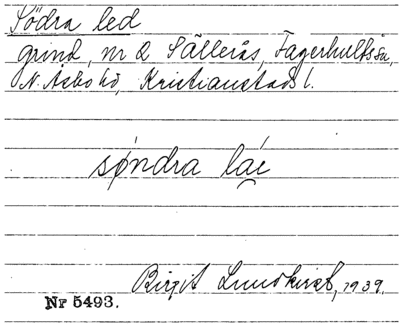 Södra led
grind, nr 2 Sällerås, Fagerhults sn,
N. Åsbo hd, Kristianstads l.
søndra láe
Birgit Lundkvist, 1939.
Nr 5493.